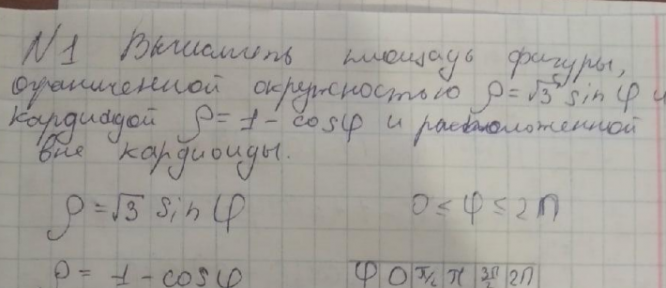 N1 Вычислить площадь фигуры,
ограниченной окружностью ρ = √3 sin φ и
кардиодой ρ = 1 - cos φ и расположенной
вне кардиоиды.
ρ = √3 sin φ 0 ≤ φ ≤ 2π
ρ = 1 - cos φ φ 0 π/2 π 3π/2 2π